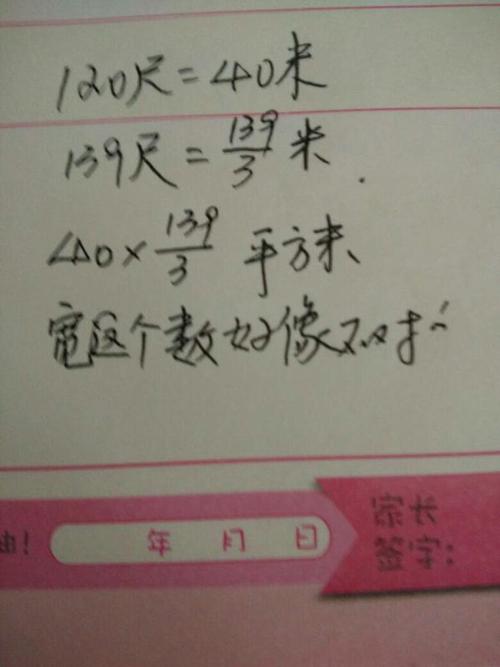 120尺=40米
139尺=139/3米.
40×139/3平方米
宽这个数好像不对!
油!
年 月 日
家长
签字: